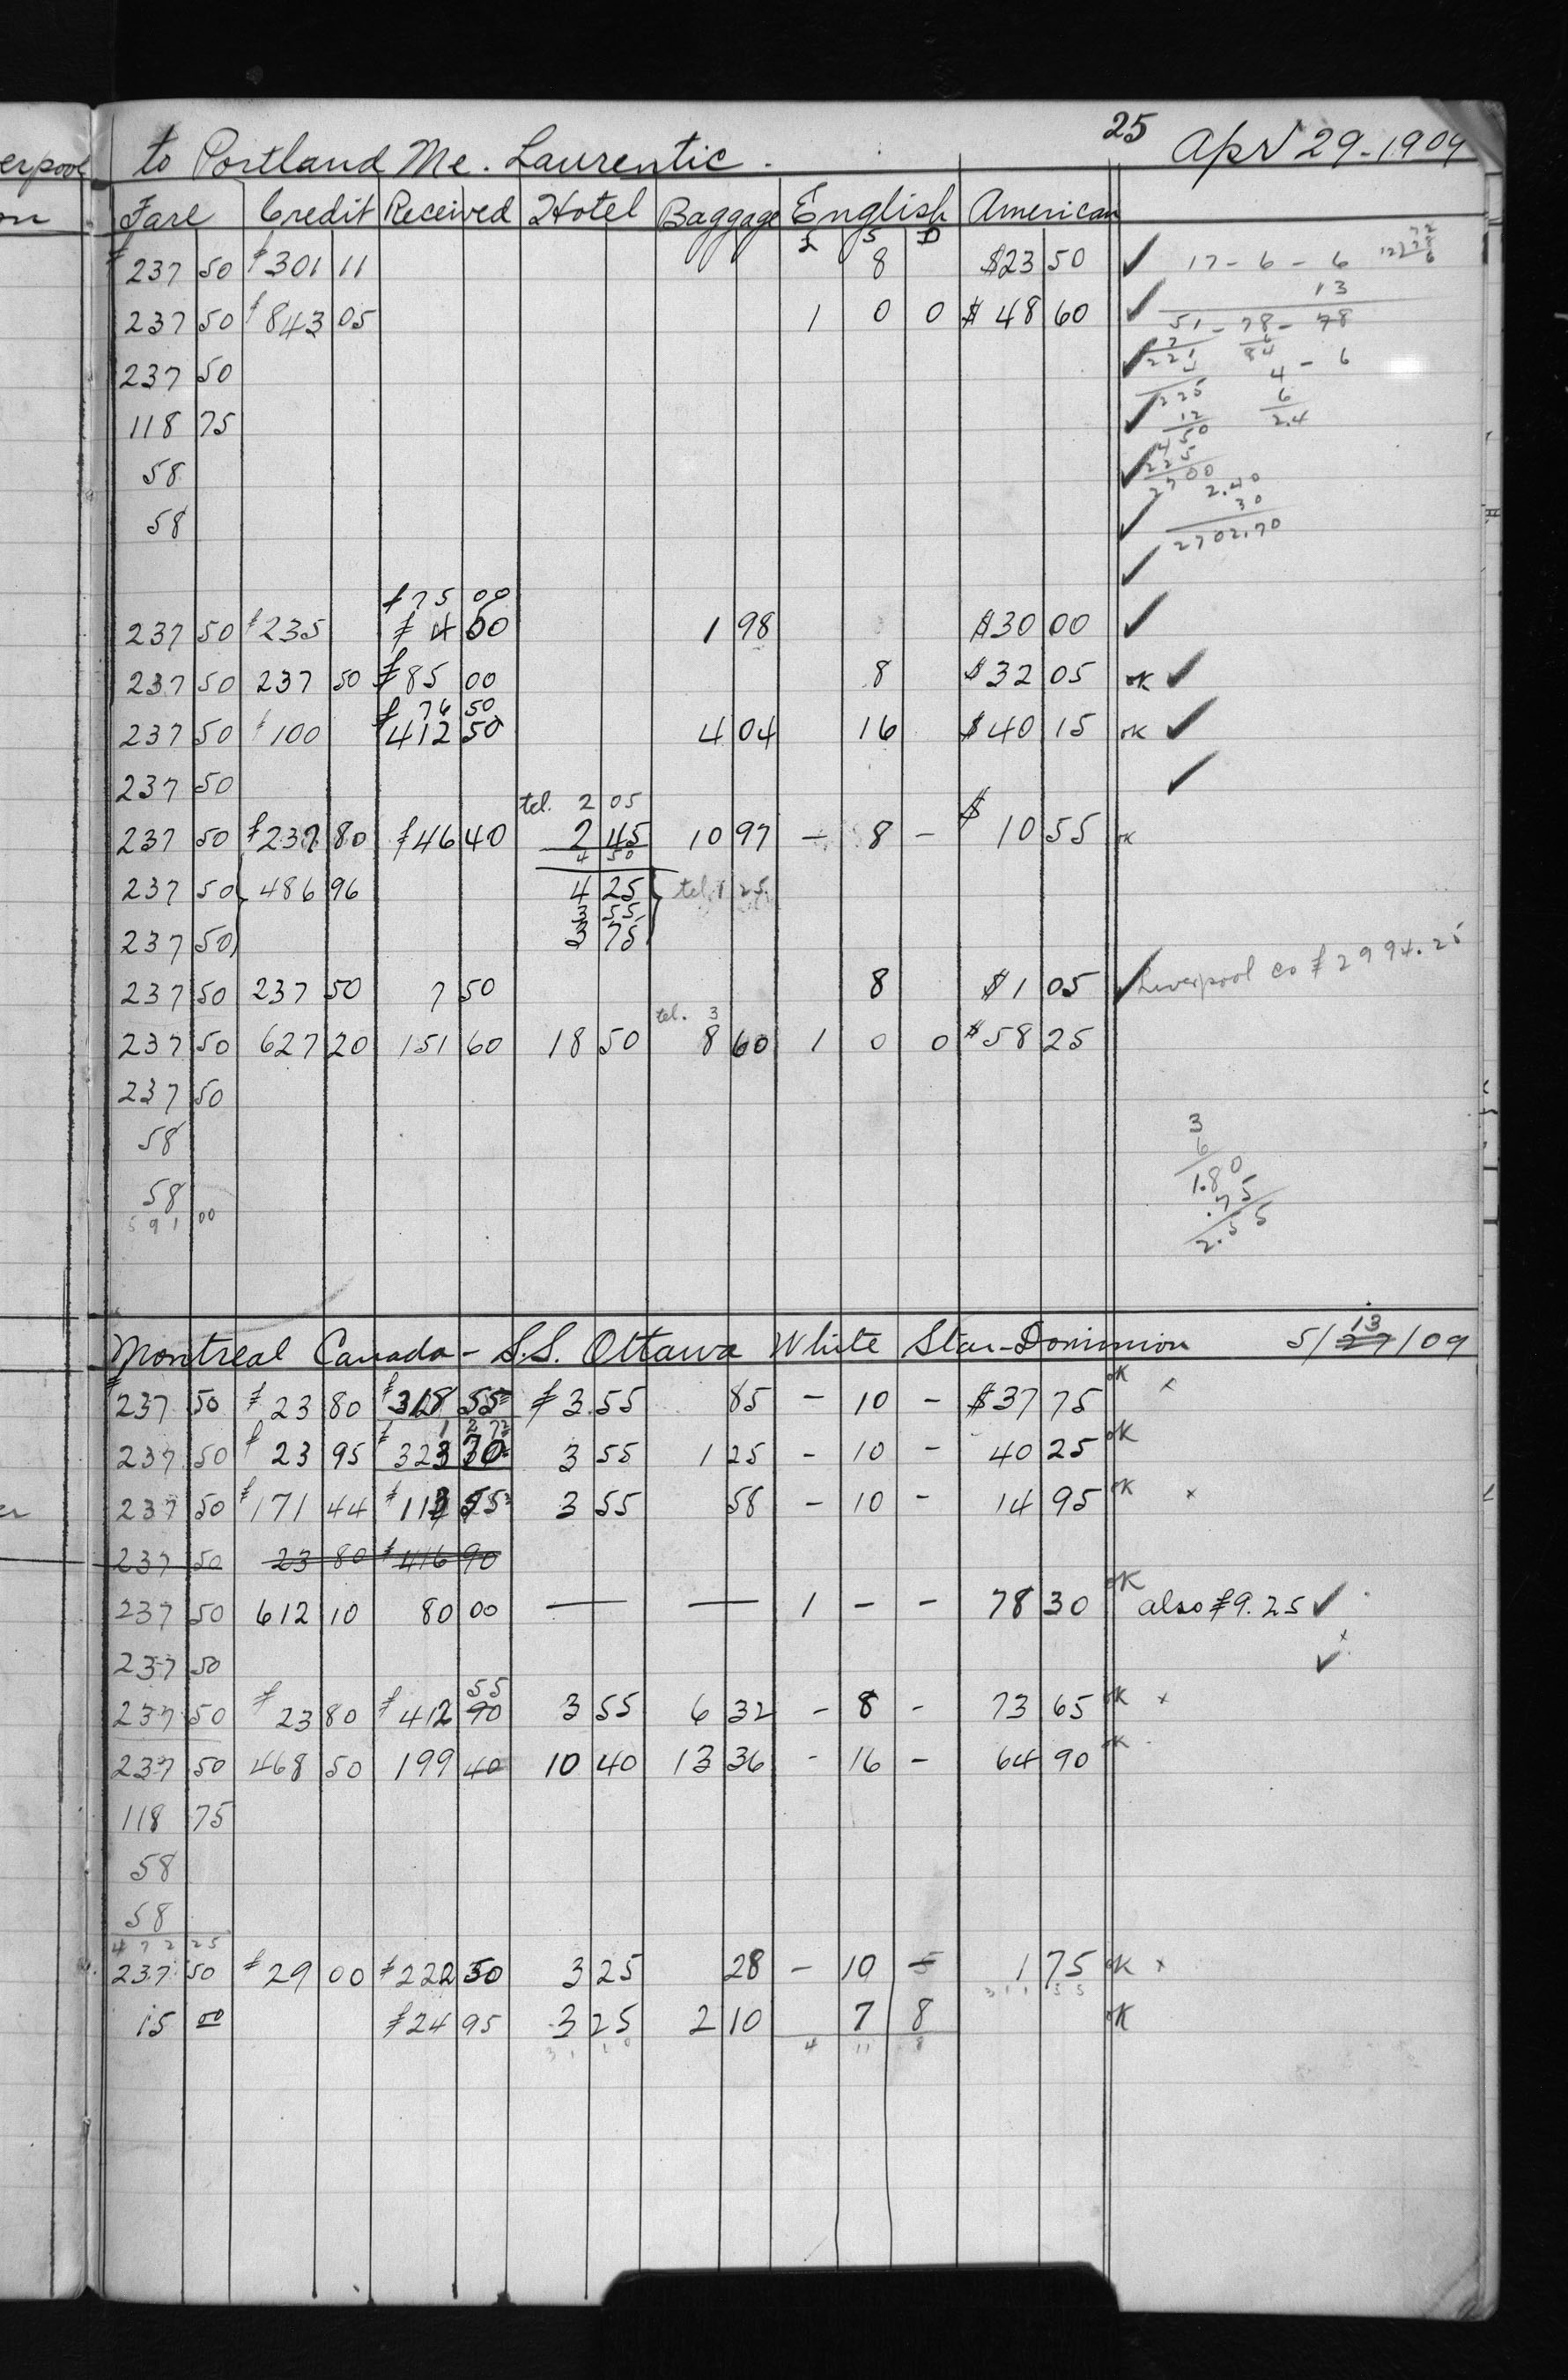 25 Apr 29-1909
to Portland Me. Laurentic.
Fare Credit Received Hotel Baggage English American
£ S D
$237 50 $301 11 8 $23 50 ✓ 17-6-6
237 50 $843 05 1 0 0 $48 60 ✓ 13
237 50 ✓ 51-78-78
118 75 ✓
58 ✓
58 ✓ 2702.70
✓
$75 00
237 50 $235 $4 00 1 98 $30 00 ✓
237 50 237 50 $85 00 8 $32 05 OK ✓
$76 50
237 50 $100 $412 50 4 04 16 $40 15 OK ✓
237 50 ✓
tel. 2 05
237 50 $237 80 $46 40 2 45 10 97 - 8 - $10 55 OK
4 50
237 50 486 96 4 25 tel. 1 25
3 55
237 50 3 75
237 50 237 50 7 50 8 $1 05 ✓ Liverpool Co $2994.25
tel. 3
237 50 627 20 151 60 18 50 8 60 1 0 0 $58 25
237 50
58 3
6
58 1.80
591 00 .75
2.55
Montreal Canada - S.S. Ottawa White Star-Dominion 5/27/09
13
$237 50 $23 80 $318 55 $3 55 85 - 10 - $37 75 OK x
237 50 $23 95 $323 70 3 55 1 25 - 10 - 40 25 OK
237 50 $171 44 $113 55 3 55 58 - 10 - 14 95 OK x
237 50 23 80 $416 90
237 50 612 10 80 00 — — 1 - - 78 30 OK also $9.25 ✓
237 50 ✓ x
55
237 50 $23 80 $412 90 3 55 6 32 - 8 - 73 65 OK x
237 50 468 50 199 40 10 40 13 36 - 16 - 64 90 OK
118 75
58
58
472 25
237 50 $29 00 $222 50 3 25 28 - 10 5 1 75 OK x
311 55
15 00 $24 95 3 25 2 10 7 8 OK
31 10 4 11 8